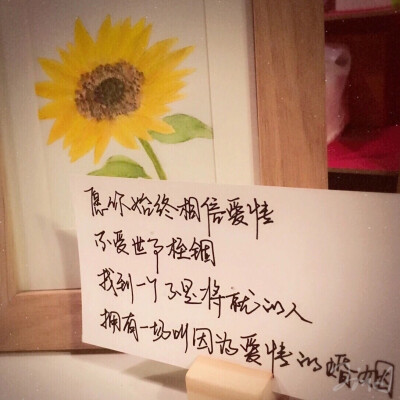 愿你始终相信爱情
不受世事桎锢
找到一个不是将就的人
拥有一场叫因为爱情的婚姻